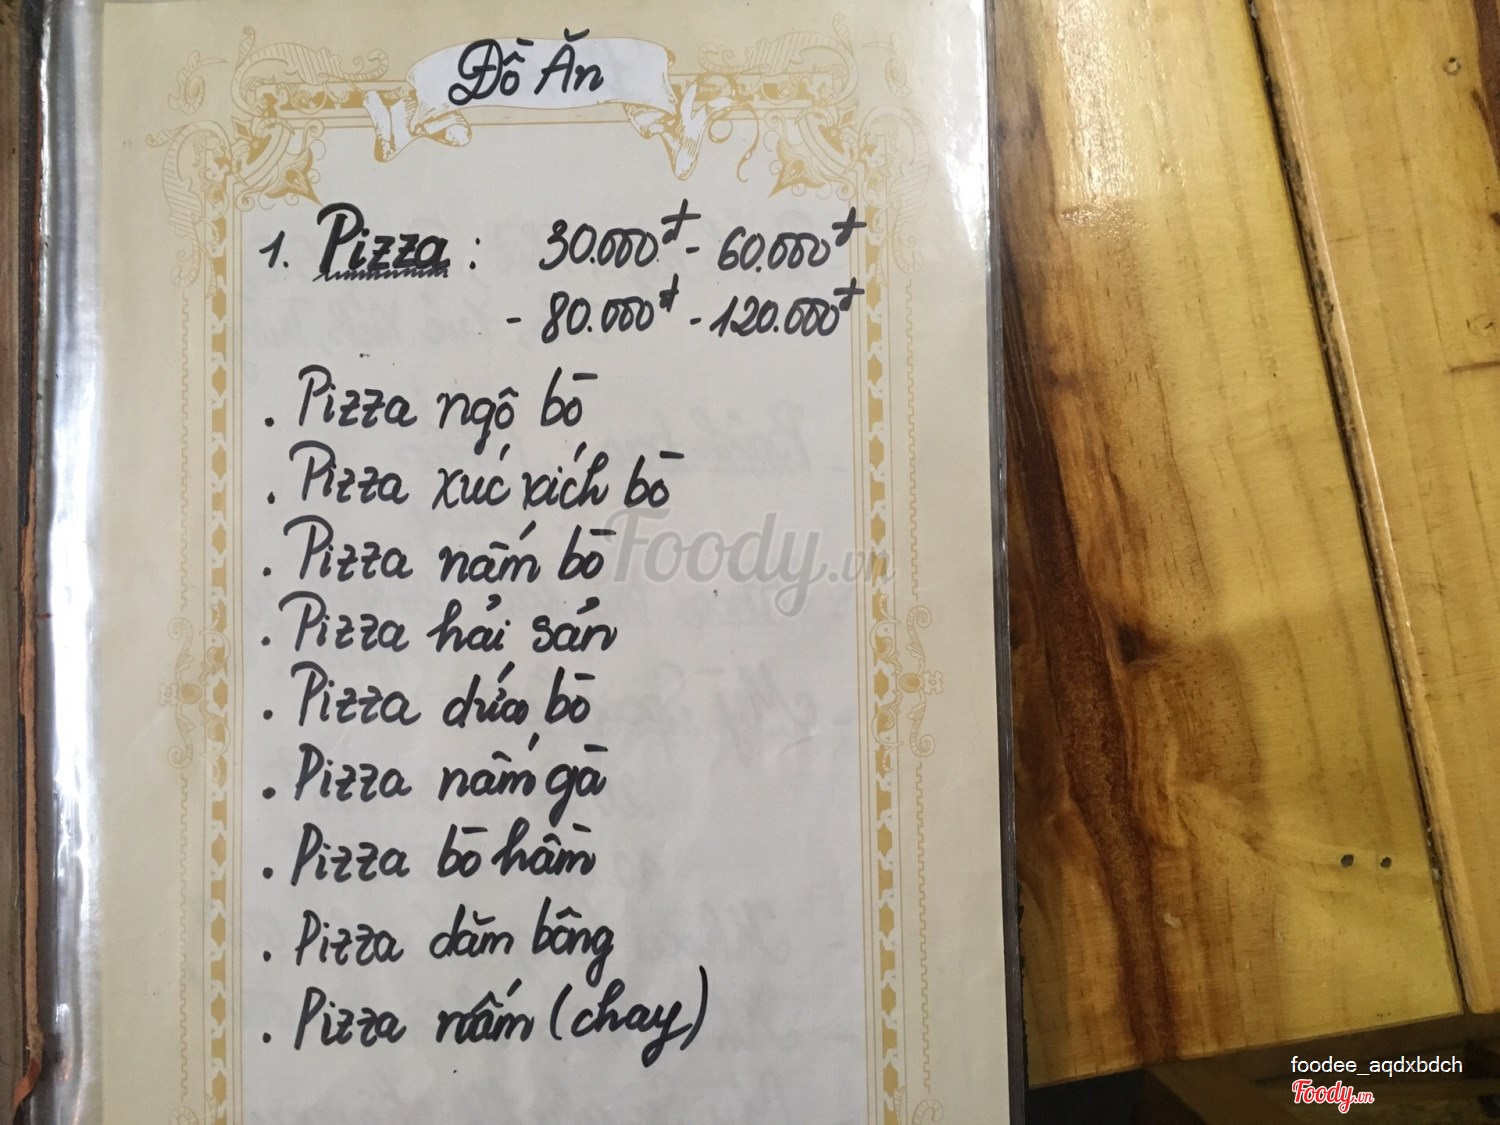 Đồ Ăn
1. Pizza : 30.000đ - 60.000đ
- 80.000đ - 120.000đ
. Pizza ngô bò
. Pizza xúc xích bò
. Pizza nấm bò
. Pizza hải sản
. Pizza dứa bò
. Pizza nấm gà
. Pizza bò hầm
. Pizza dăm bông
. Pizza nấm (chay)
Foody.vn
foodee_aqdxbdch
Foody.vn